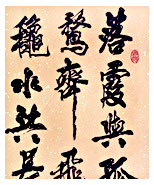 落霞與孤
鶩齊飛
龝水共長